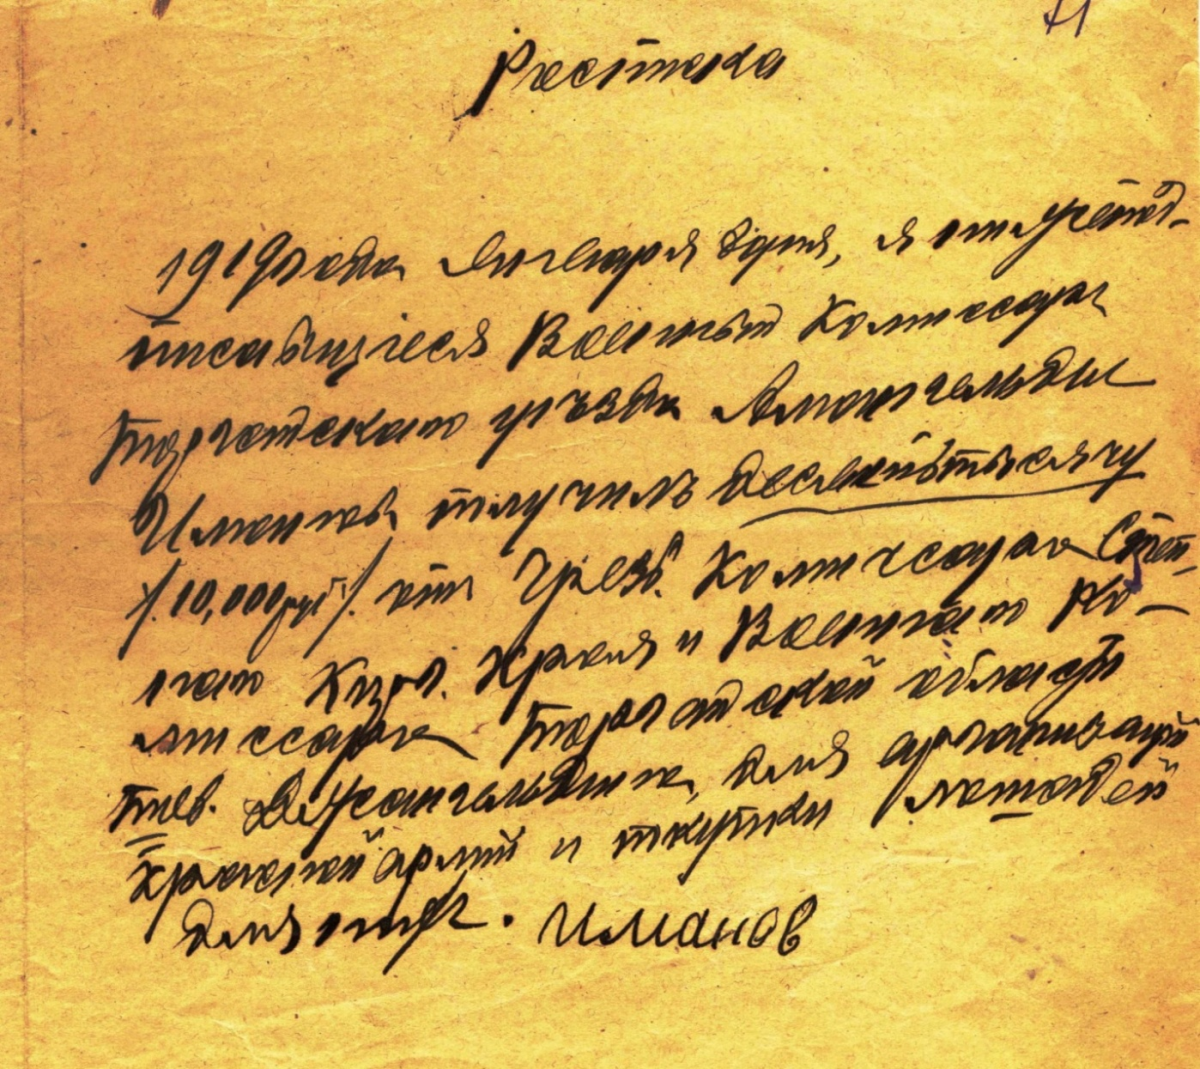 71
Росписка
1919 года Января дня, я нижепод-
писавшиеся Военный Комиссаръ
Тургайскаго уъзда Амангельды
Имановъ получилъ десять тысячу
/10,000 руб/. отъ Чрезв. Комиссара Степ-
наго Кирг. Края и Военнаго Ко-
миссара Тургайской области
тов. Джангильдина, для организаций
Красной армий и покупки лошадей
для них. Иманов